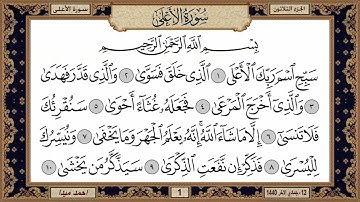 الجزء الثلاثون
سورة الأعلى
سُورَةُ الأَعْلَى
بِسْمِ اللَّهِ الرَّحْمَٰنِ الرَّحِيمِ
سَبِّحِ اسْمَ رَبِّكَ الْأَعْلَى ١ الَّذِي خَلَقَ فَسَوَّىٰ ٢ وَالَّذِي قَدَّرَ فَهَدَىٰ
٣ وَالَّذِي أَخْرَجَ الْمَرْعَىٰ ٤ فَجَعَلَهُ غُثَاءً أَحْوَىٰ ٥ سَنُقْرِئُكَ
فَلَا تَنسَىٰ ٦ إِلَّا مَا شَاءَ اللَّهُ إِنَّهُ يَعْلَمُ الْجَهْرَ وَمَا يَخْفَىٰ ٧ وَنُيَسِّرُكَ
لِلْيُسْرَىٰ ٨ فَذَكِّرْ إِن نَّفَعَتِ الذِّكْرَىٰ ٩ سَيَذَّكَّرُ مَن يَخْشَىٰ ١٠
12- جمادى الآخر 1440
1